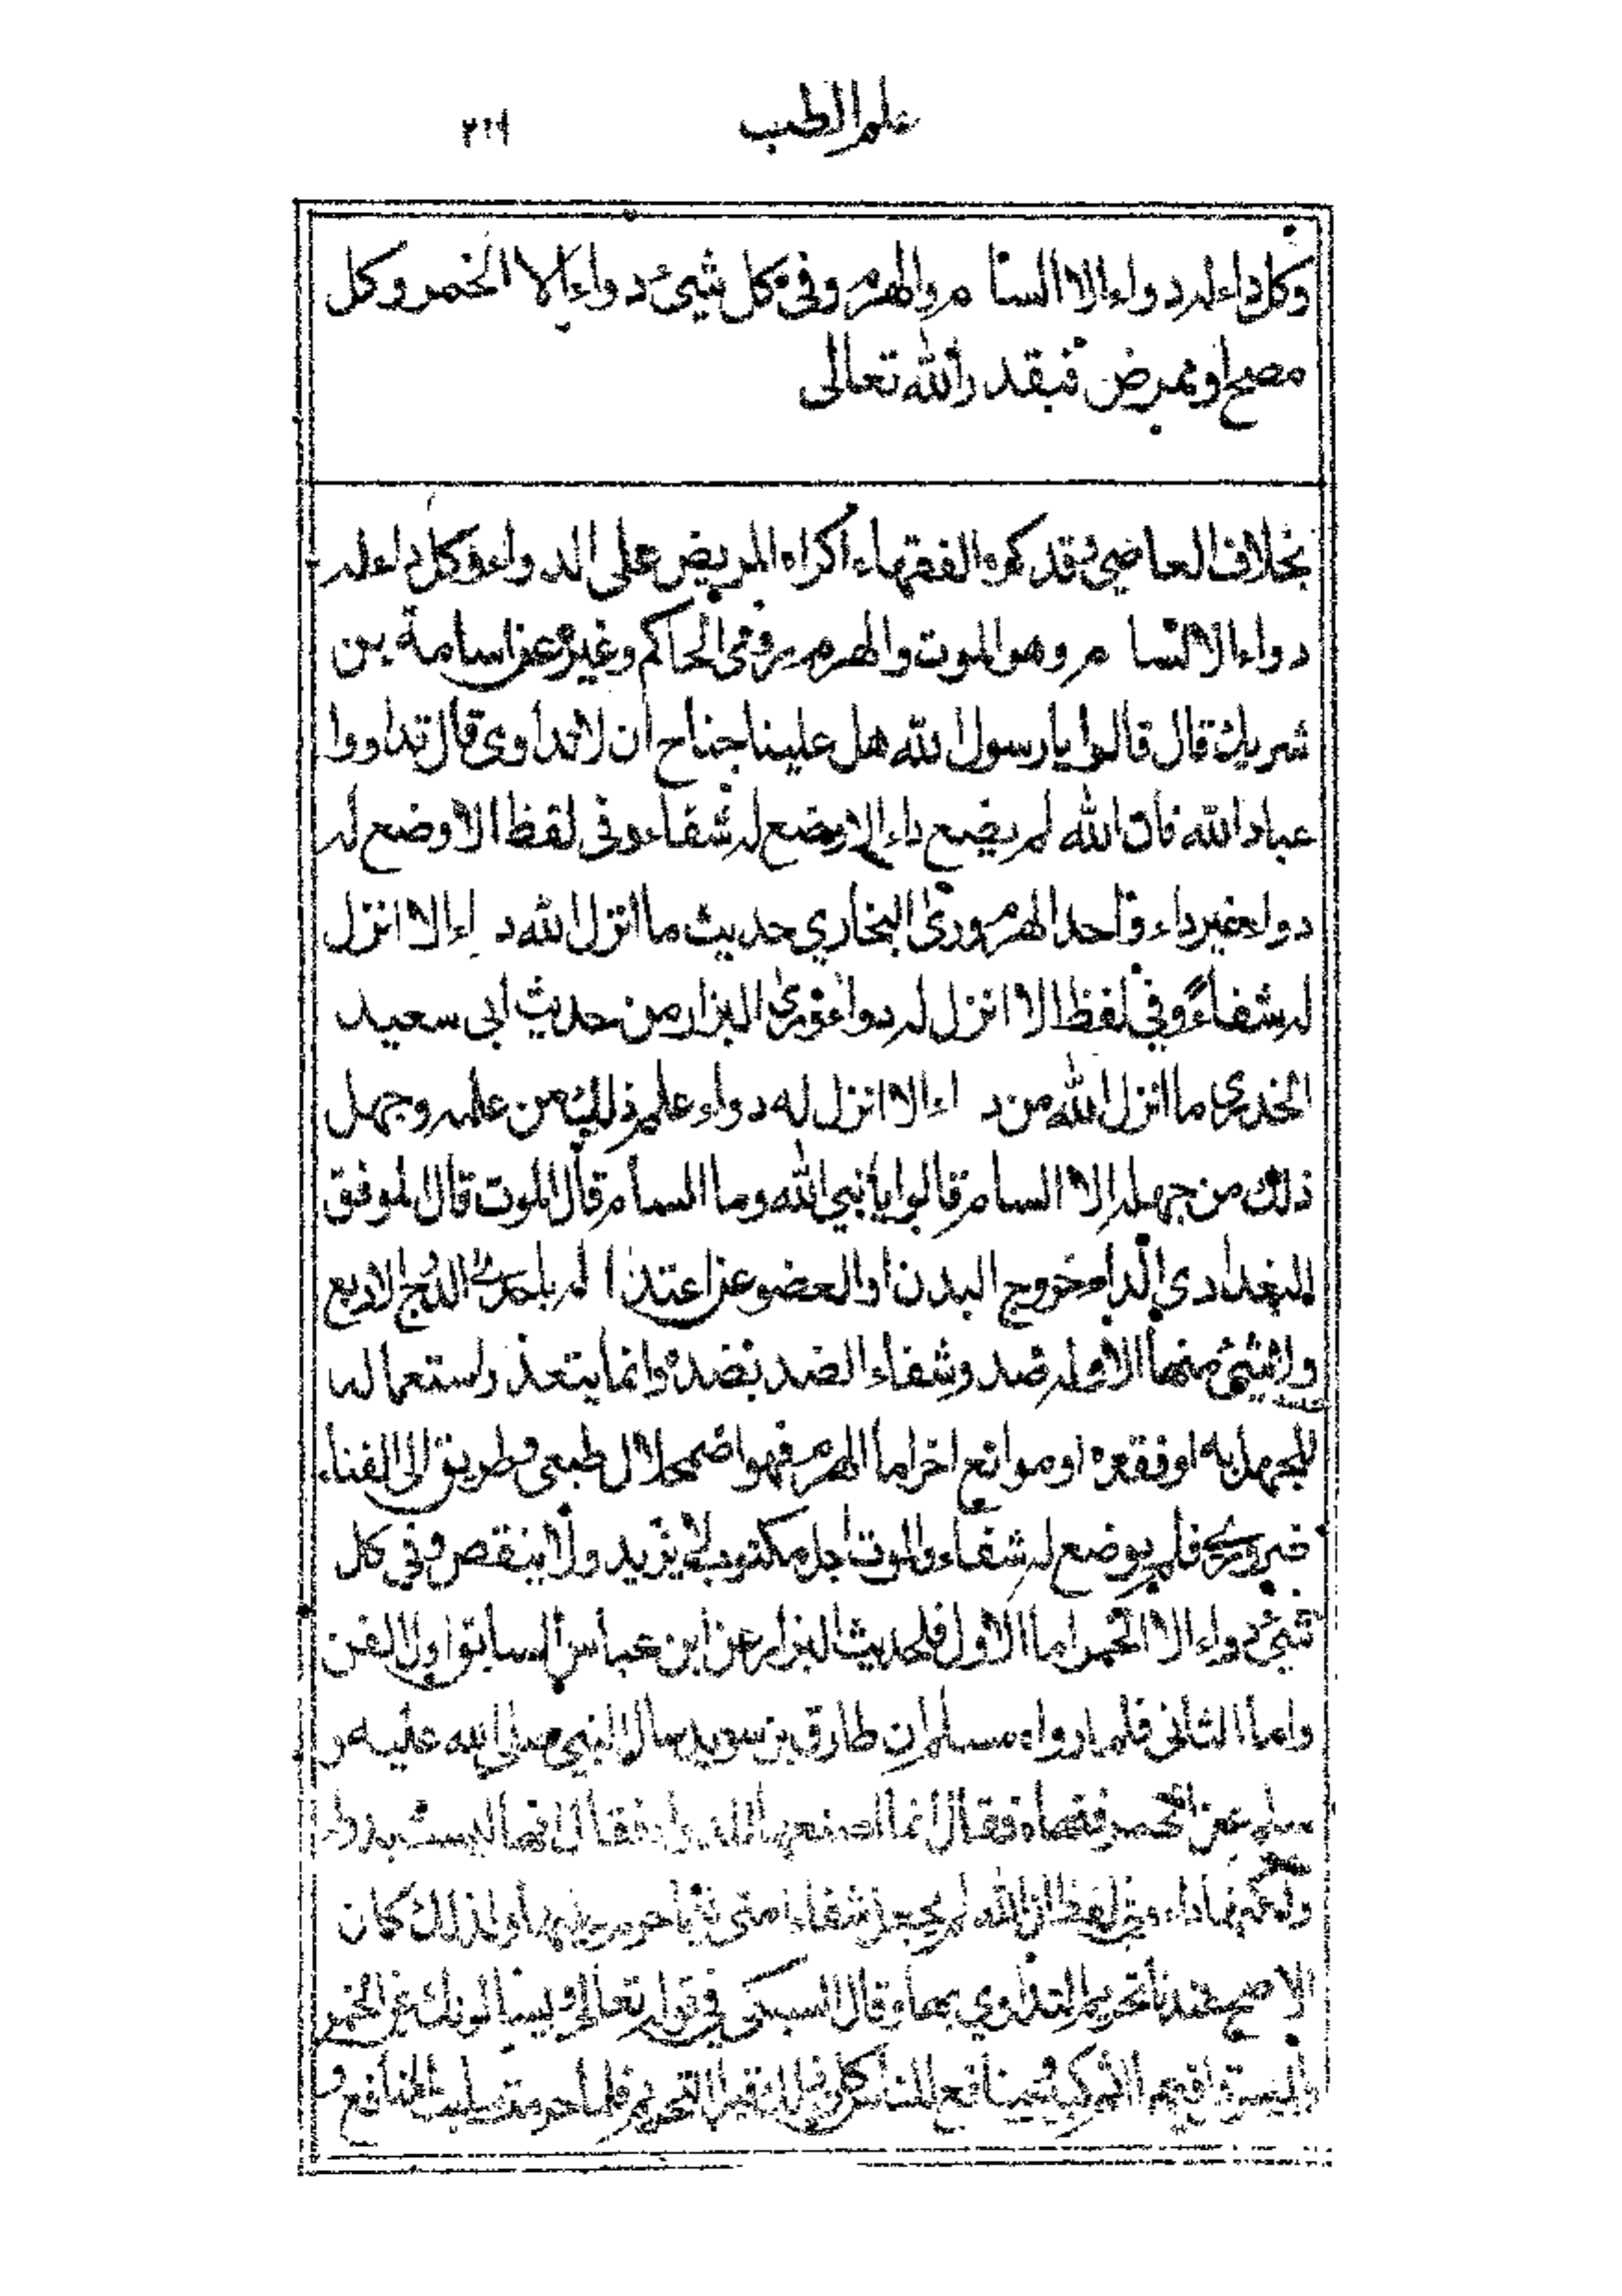 علم الطب ٢١٩
وكل داء له دواء الا السا م والهرم وفى كل شيئ دواء الا الخمر وكل
مصح او ممرض فبقد ر الله تعالى
بخلاف العاصي فقد كره الفقهاء اكراه المريض على الدواء وكل داء له
دواء الا السا م وهو الموت والهرم روى الحاكم وغيره عن اسامة بن
شريك قال قالوا يا رسول الله هل علينا جناح ان لا نداوى قال تداووا
عباد الله فان الله لم يضع داء الا وضع له شفاء وفى لفظ الا وضع له
دواء غير داء واحد الهرم وروى البخاري حديث ما انزل الله د اء الا انزل
له شفاء وفي لفظ الا انزل له دواء وروى البزار من حديث ابى سعيد
الخدرى ما انزل الله من د اء الا انزل له دواء علم ذلك من علمه وجهل
ذلك من جهله الا السام قالوا يا نبي الله وما السام قال الموت قال الموفق
البغدادي الداء خروج البدن او العضو عن اعتدا له باحدى الدرج الاربع
ولا شيئ منها الا وله ضد وشفاء الضد بضده وانما يتعذر استعماله
للجهل به او فقده او موانع اخر اما الهرم فهو اضمحلال طبعى وطريق الى الفناء
ضروري فلم يوضع له شفاء والموت اجل مكتوب لا يزيد ولا ينقص وفى كل
شيئ دواء الا الخمر اما الاول فلحديث البزار عن ابن عباس السابق اول الفن
واما الثانى فلما رواه مسلم ان طارق بن سويد سال النبي صلى الله عليه و
سلم عن الخمر فنهاه فقال انما اصنعها للدواء فقال انها ليست بدواء
ولكنها داء وفى لفظ ان الله لم يجعل شفاء امتى فيما حرم عليها ولذلك كان
الاصح عندنا تحريم التداوي بها وقال السبكى في قوله تعالى ويسالونك عن الخمر
والميسر قل فيهما اثم كبير ومنافع للناس كان ذلك قبل التحريم فلما حرمت سلبت المنافع و